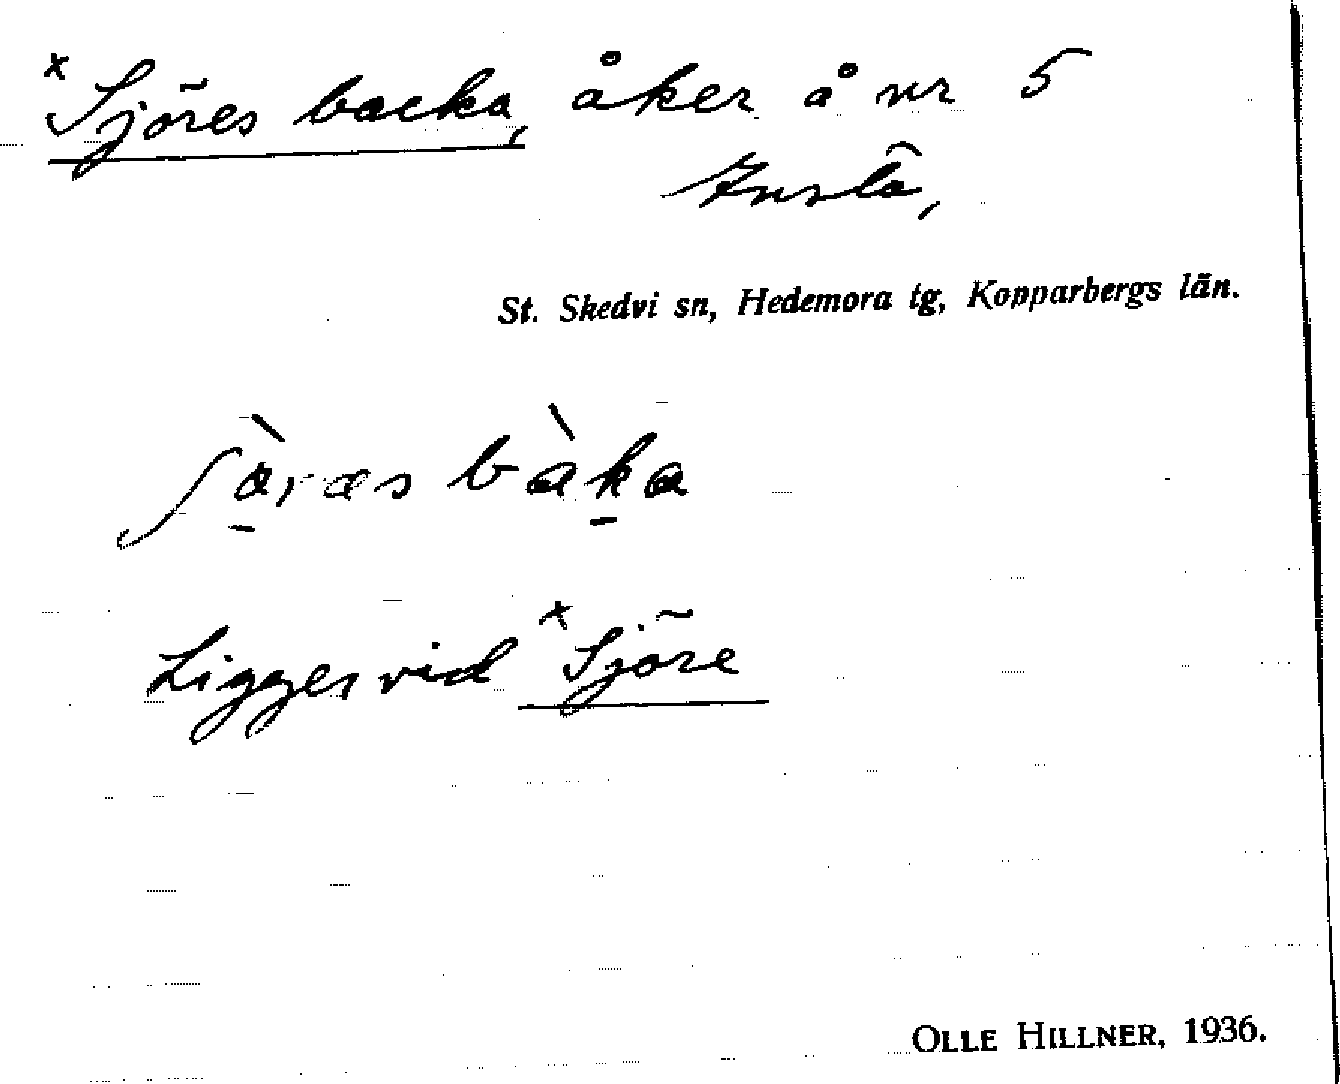 × Sjöres backa, åker å nr 5
St. Skedvi sn, Hedemora tg, Kopparbergs län.
Ligger vid × Sjöre
OLLE HILLNER, 1936.